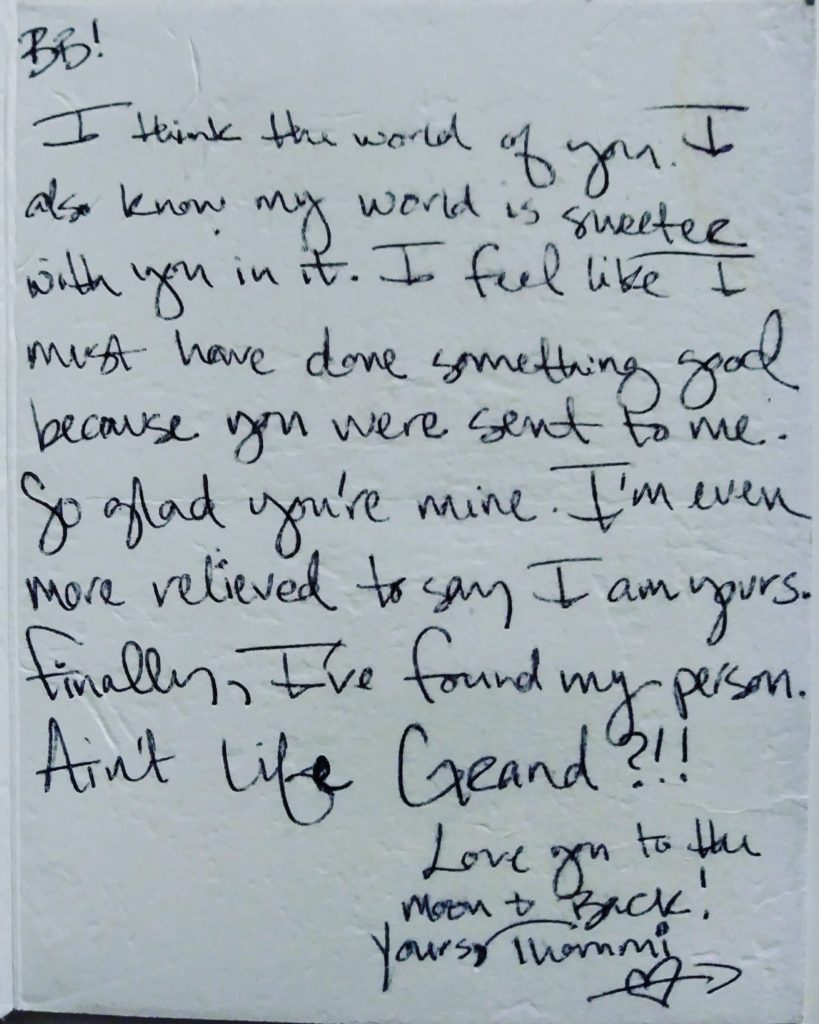 BB!
I think the world of you. I
also know my world is sweeter
with you in it. I feel like I
must have done something good
because you were sent to me.
So glad you're mine. I'm even
more relieved to say I am yours.
Finally, I've found my person.
Ain't Life Grand?!!
Love you to the
moon + Back!
Yours,